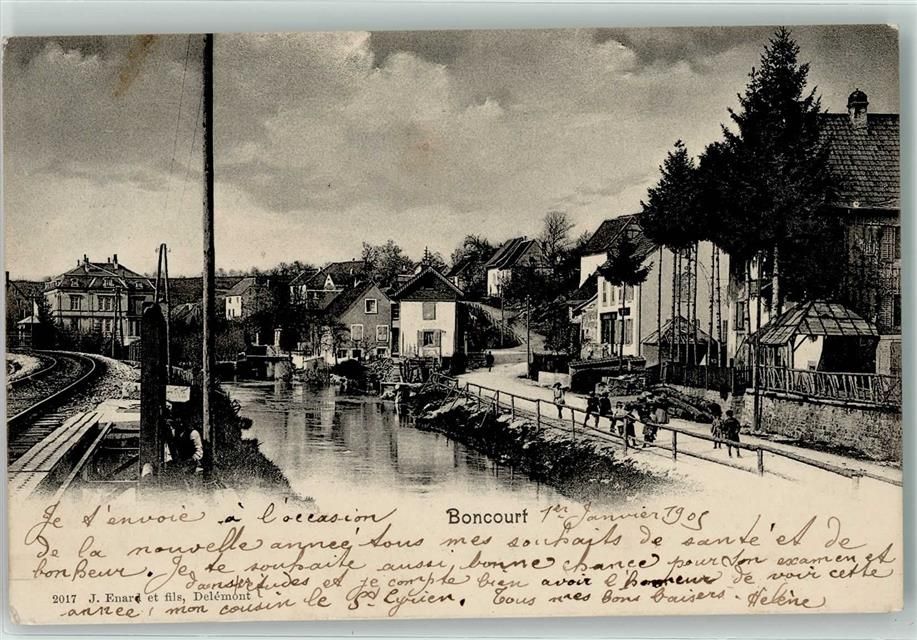 Boncourt 1er Janvier 1905
Je t'envoie à l'occasion
de la nouvelle année tous mes souhaits de santé et de
bonheur. Je te souhaite aussi, bonne chance pour ton examen et
dans études et je compte bien avoir l'honneur de voir cette
année, mon cousin le Cyrien. Tous mes bons baisers. Hélène
2017 J. Enard et fils, Delémont